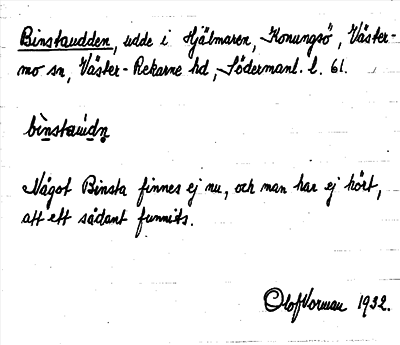 Binstaudden, udde i Hjälmaren, Konungsö, Väster-
mo sn, Väster-Rekarne hd, Södermanl. l. 61.
binstaudn
Något Binsta finnes ej nu, och man har ej hört,
att ett sådant funnits.
Olof Vorman 1932.